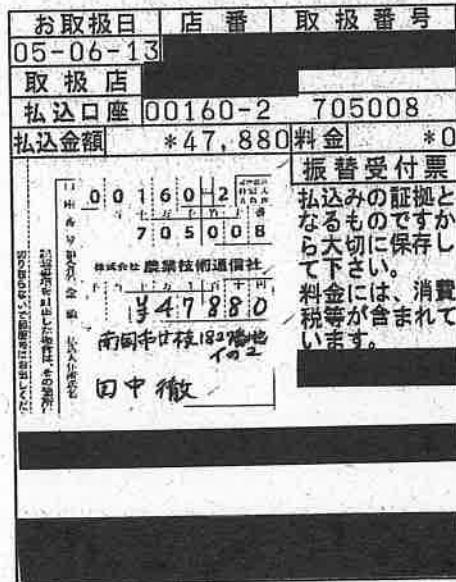 お取扱日 店番 取扱番号
05-06-13
取扱店
払込口座 00160-2 705008
払込金額 *47,880 料金 *0
振替受付票
払込みの証拠と
なるものですか
ら大切に保存し
て下さい。
料金には、消費
税等が含まれて
います。
00160-2
705008
株式会社 農業技術通信社
¥47880
南国市廿枝1827番地
イの2
田中 徹